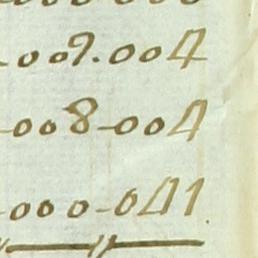 -009.004
-008-004
-000-041